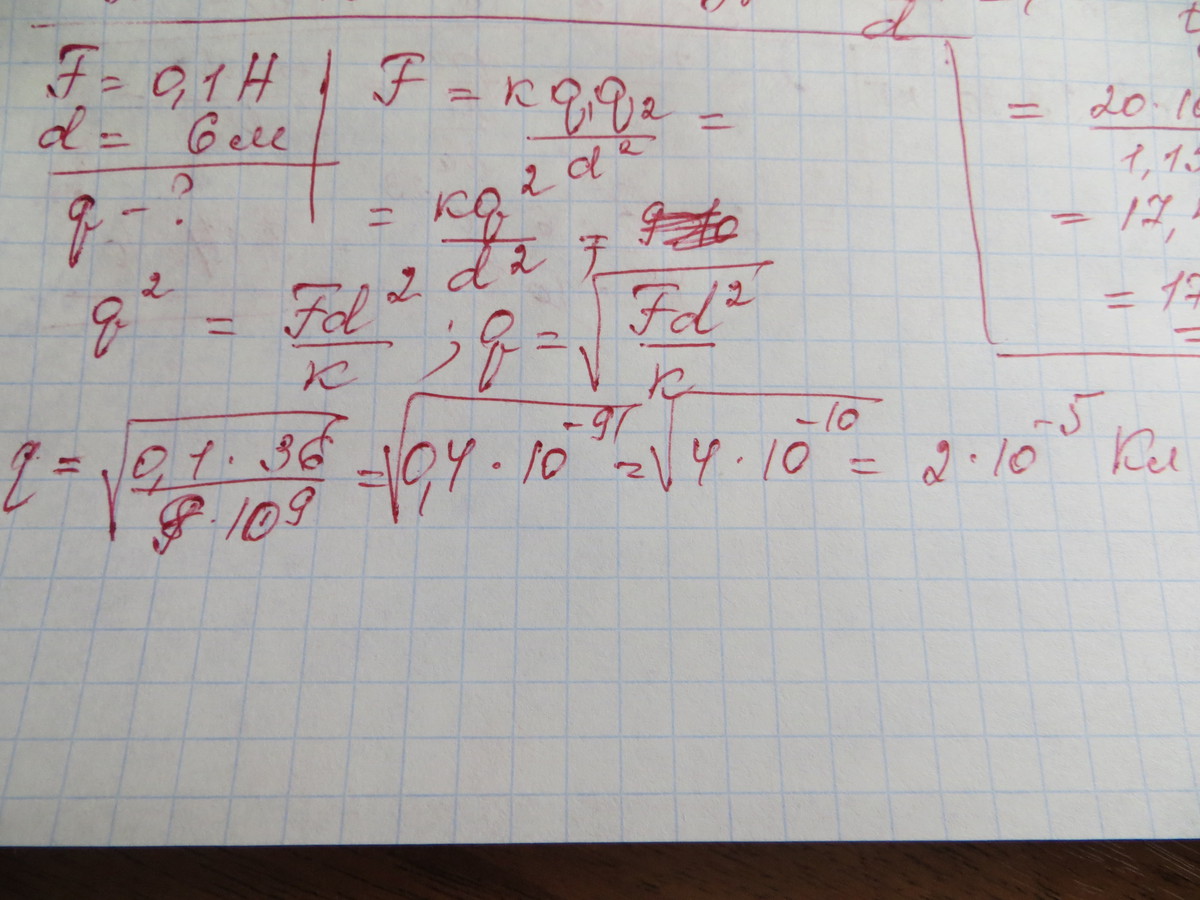 d
F = 0,1 Н
d = 6 м
q - ?
F = кq₁q₂/d² =
= кq²/d²
q² = Fd²/к ; q = √(Fd²/к)
q = √(0,1 · 36/9 · 10⁹) = √(0,4 · 10⁻⁹) = √(4 · 10⁻¹⁰) = 2 · 10⁻⁵ Кл
= 20 · 10
1,15
= 17,
= 17